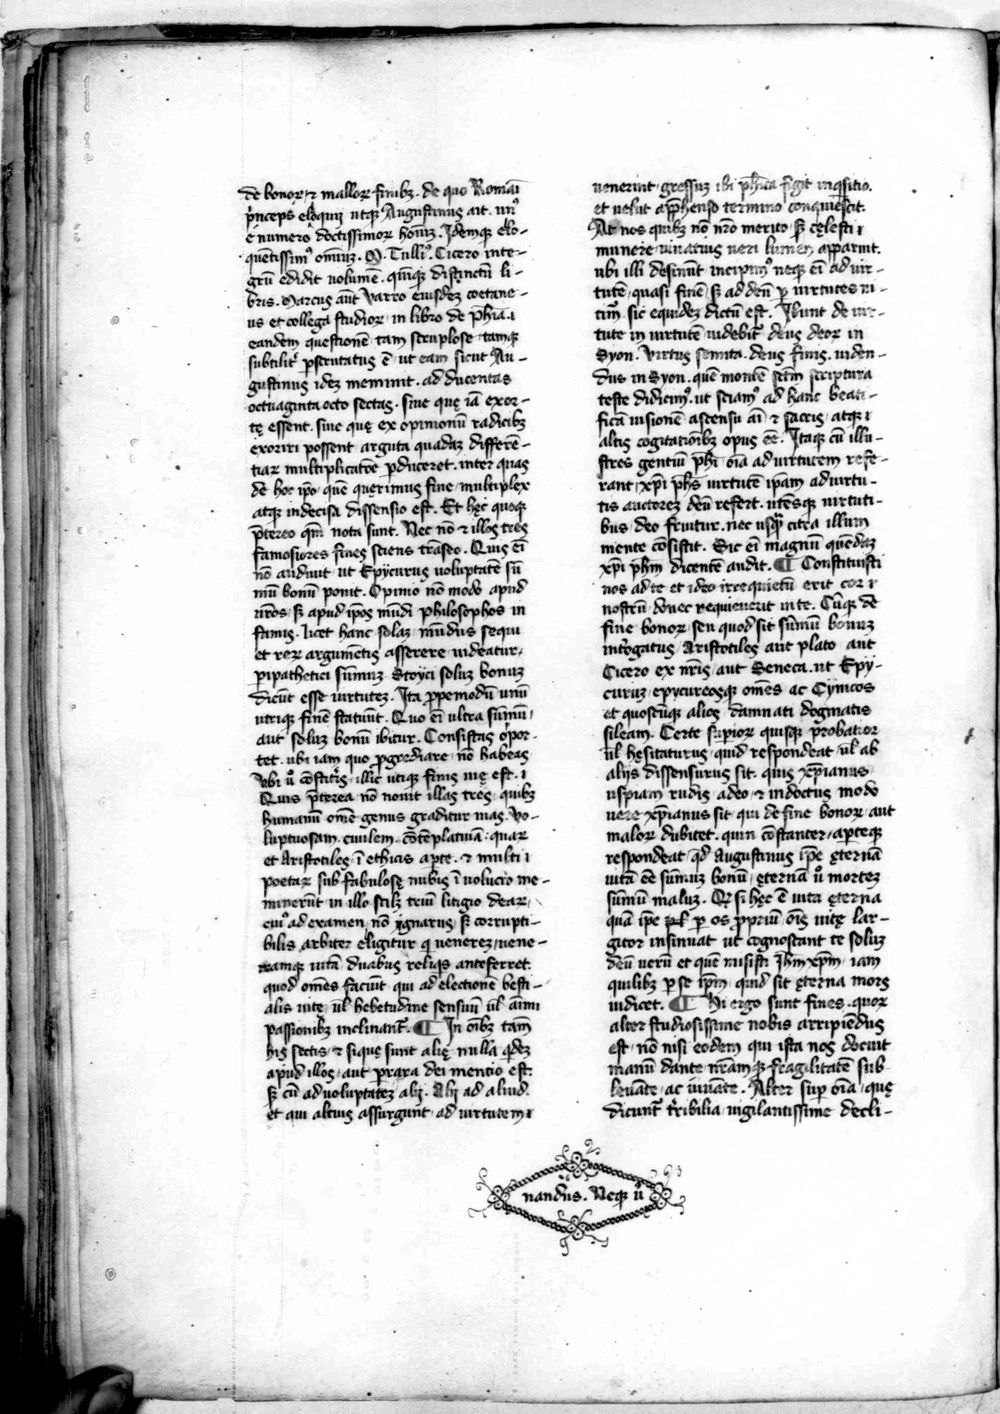 de bonoꝝ ⁊ malloꝝ finibꝫ. de quo Romāī
p̄nceps eloquii utqꝫ Augustinus ait. vn9
ē numero doctissimoꝝ hoīuꝫ. Idemqꝫ elo-
quētissim9 omiuꝫ. M. Tulli9. Cicero inte-
grū edidit volumē. qn̄qꝫ distinctū li-
bris. Marcus aūt Varro eiusdeꝫ coetane-
us et collega studioꝝ in libro de ph̄ia.
eandem questionē tam scruplose tamqꝫ
subtilit̄ p̱scrutatus ē ut eam sicut Au-
gustinus ideꝫ meminit. ad ducentas
octuaginta octo sectas. siue quę iā exor-
tę essent. siue quę ex opinionū radicibꝫ
exoriri possent arguta quadaꝫ differē-
tiaꝝ multiplicatōe ꝓduceret. inter quas
de hoc ip̄o quē querimus fine multiplex
atqꝫ indecisa dissensio est. Et hęc quoqꝫ
p̄tereo qm̄ nota sunt. Nec nō ⁊ illos tres
famosiores fines sciens trāseo. Quis eī
nō audiuit ut Epycurus voluptatē sū
mū bonū ponit. Opinio nō modo apud
nr̄os. sꝫ apud ip̄os mūdi philosophos in
famis. licet hanc solaꝫ mūdus sequi
et reꝝ argumētis asserere uideatur.
p̱ipathetici sūmuꝫ. Stoyci soluꝫ bonuꝫ
dicūt esse uirtuteꝫ. Ita ꝓpemodū unū
utriqꝫ finē statuūt. Quo eī ultra sūmū
aut soluꝫ bonū ibitur. Consistas opor-
tet. ubi iam quo ꝓgrediare nō habeas
Vbi u͛o cōstit̄is. illic utiqꝫ finis uię est.
Quis p̄terea nō nouit illas tres. quibꝫ
humanū omē genus graditur uias. Vo-
luptuosam. ciuilem. cōtēplatiuā: quaꝝ
et Aristotiles ī ethicis ap̱te. ⁊ multi
poetaꝝ sub fabulosę nubis ī uolucro me-
minerūt in illo scilꝫ triū litigio deaꝝ.
cui9 ad examen nō ignarus. sꝫ corrupti-
bilis arbiter eligitur q̄ uenereꝫ uene-
reamqꝫ uitā duabus reliq̄s anteferret.
quod om̄es faciūt qui ad electionē besti-
alis uitę ūl hebetudine sensuū ūl aīmi
passionibꝫ inclinant̄. ¶ In oībꝫ tam̄
his sectis ⁊ siquę sunt alię nulla qͥdeꝫ
apud illos. aut p̱rara dei mentio est.
sꝫ cū ad voluptateꝫ alij. Alij ad aliud.
et qui altius assurgunt ad uirtutem
uenerint gressuꝫ ibi ph̄ica figit inqͥsitio.
et uelut app̄henso termino conquiescit.
At nos quibꝫ nō nr̄o merito sꝫ cęlesti
munere uiuacius ueri lumen apparuit.
ubi illi desinūt incipim9 neqꝫ eī ad uir-
tutē quasi finē sꝫ ad deū ꝑ uirtutes ni-
tim̄. sic equideꝫ dictū est. Ibunt de uir-
tute in uirtutē uidebit̄ deus deoꝝ in
Syon. Virtus semita. deus finis. uiden-
dus in Syon. quē montē sc̄tm scriptura
teste didicim9. ut sciam9 ad hanc beati-
ficā uisionē ascensu aī ⁊ sacris atqꝫ
altis cogitationibꝫ opus ēē. Itaqꝫ cū illu-
stres gentiū ph̄i oīa ad uirtutem refe-
rant xp̄i ph̄s uirtutē ip̄am ad uirtu-
tis auctoreꝫ deū refert. utēsqꝫ uirtuti-
bus deo fruitur. nec usqͣ citra illum
mente cōsistit. Sic eī magnū quēdaꝫ
xp̄i ph̄m dicentē audit. ¶ Constituisti
nos ad te et ideo irrequietū erit cor
nostrū donec requieuerit in te. Cūqꝫ de
fine bonoꝝ seu quod sit sūmū bonuꝫ
int̄rogatus Aristotiles aut plato aut
Cicero ex nr̄is aut Seneca. ut Epy-
curuꝫ epycureosqꝫ om̄es ac Cynicos
et quoscūqꝫ alios damnati dogmatis
sileam. Certe sup̱ior quisqꝫ ꝓbatior
ūl hęsitaturus quid respondeat ūl ab
aliis dissensurus sit. quis xp̄ianus
uspiam rudis adeo ⁊ indoctus modo
uere xp̄ianus sit qui de fine bonoꝝ aut
maloꝝ dubitet. quin cōstanter ap̱teqꝫ
respondeat qd̄ Augustinus ip̄e ęternā
uitā ēē sūmuꝫ bonū ęternā u͛o morteꝫ
sūmū maluꝫ. Qd̄ si hęc ē uita ęterna
quā ip̄e ꝑ os ꝓpriū oīs uitę lar-
gitor insinuat ut cognoscant te soluꝫ
deū uerū et quē misisti Ih̄m xp̄m. iam
quilibꝫ ꝑ se ip̄m quid sit ęterna mors
iudicet. ¶ Hi ergo sunt fines. quoꝝ
alter studiosissime nobis arripiēdus
est. nō nisi eodem qui ista nos docuit
manū dante nr̄amqꝫ fragilitatē sub
leuāte ac iuuāte. Alter sup̱ oīa quę
dicunt̄ t̄ribilia uigilantissime decli-
nandus. Neqꝫ u͛o